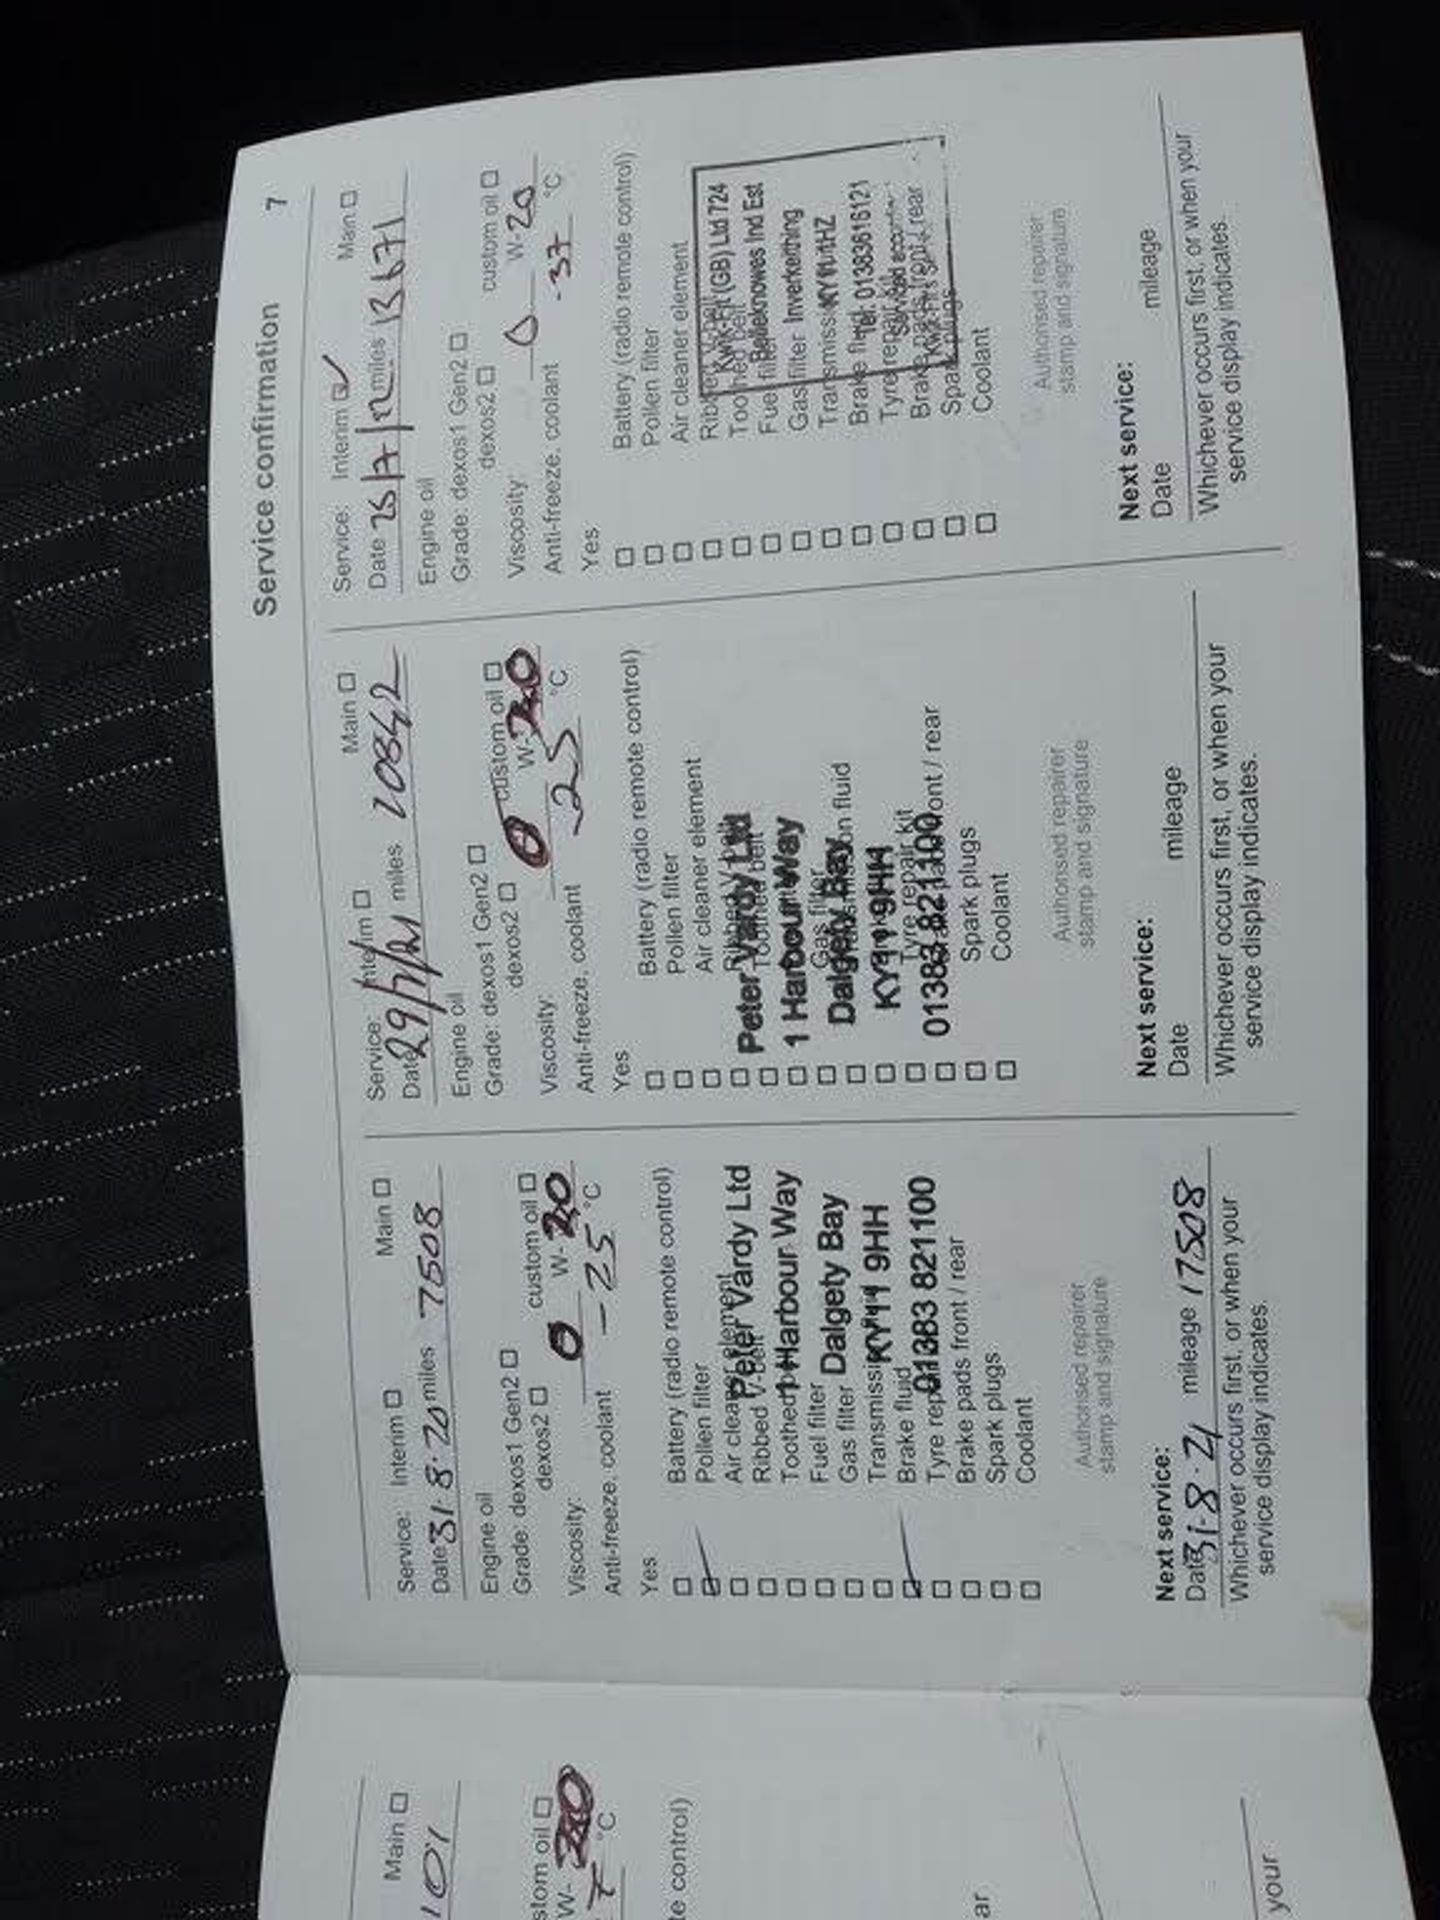 Service confirmation 7
Service: Interim Main
Date 31·8·20 miles 7508
Engine oil
Grade: dexos1 Gen2
dexos2 custom oil
Viscosity: 0 W-20
Anti-freeze, coolant -25 °C
Yes
Battery (radio remote control)
Pollen filter
Air cleaner element
Ribbed V-belt
Toothed
Fuel filter
Gas filter
Transmissi
Brake fluid
Tyre rep
Brake pads front / rear
Spark plugs
Coolant
Peter Vardy Ltd
1 Harbour Way
Dalgety Bay
KY11 9HH
01383 821100
Authorised repairer
stamp and signature
Next service:
Date 31·8·21 mileage 17508
Whichever occurs first, or when your
service display indicates.
Service: Interim Main
Date 29/7/21 miles 10842
Engine oil
Grade: dexos1 Gen2
dexos2 custom oil
Viscosity: 0 W-20
Anti-freeze, coolant -25 °C
Yes
Battery (radio remote control)
Pollen filter
Air cleaner element
Ribbed V-belt
Toothed belt
Gas filter
Tyre repair kit
ont / rear
Spark plugs
Coolant
Peter Vardy Ltd
1 Harbour Way
Dalgety Bay
KY11 9HH
01383 821100
Authorised repairer
stamp and signature
Next service:
Date mileage
Whichever occurs first, or when your
service display indicates.
Service: Interim Main
Date 25/7/22 miles 13671
Engine oil
Grade: dexos1 Gen2
dexos2 custom oil
Viscosity: 0 W-20
Anti-freeze, coolant -37 °C
Yes
Battery (radio remote control)
Pollen filter
Air cleaner element
Toothed belt
Fuel filter
Gas filter
Transmiss
Brake fl
Tyre repair
Brake pads front / rear
Spark plugs
Coolant
Kwik-Fit (GB) Ltd 724
Belleknowes Ind Est
Inverkeithing
Tel: 01383616121
Authorised repairer
stamp and signature
Next service:
Date mileage
Whichever occurs first, or when your
service display indicates.
Main
101
stom oil
W-
°C
te control)
ar
your